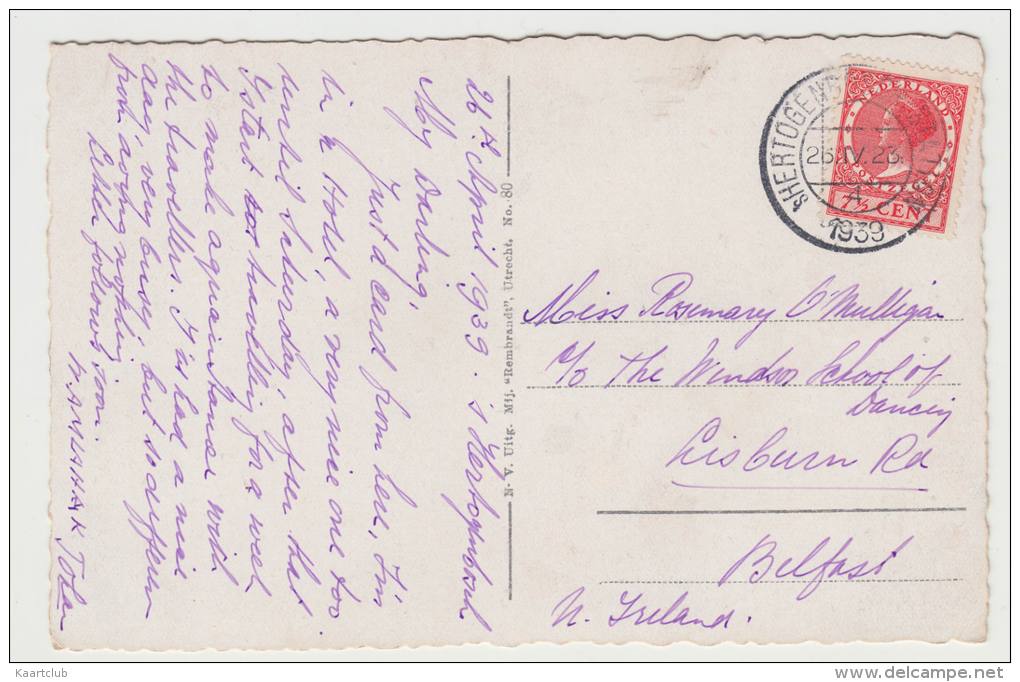 26th April 1939. s Hertogenbosch
My Darling,
Just a card from here, I'm
in a Hotel, a very nice one too
until Saturday, after that
I start travelling for a week
to make aquaintances with
the travellers. I've had a nice
day, very busy, but so different
from doing nothing
Letter follows soon.
N. V. Uitg. Mij. "Rembrandt", Utrecht. No. 80
'S HERTOGENB
26.IV.23
A
1939
NEDERLAND
POSTZEGEL
7½ CENT
Miss Rosemary O'Mulligan
c/o The Windsor School of
Dancing
Lisburn Rd
Belfast
N. Ireland.
Kaartclub
delcampe.net